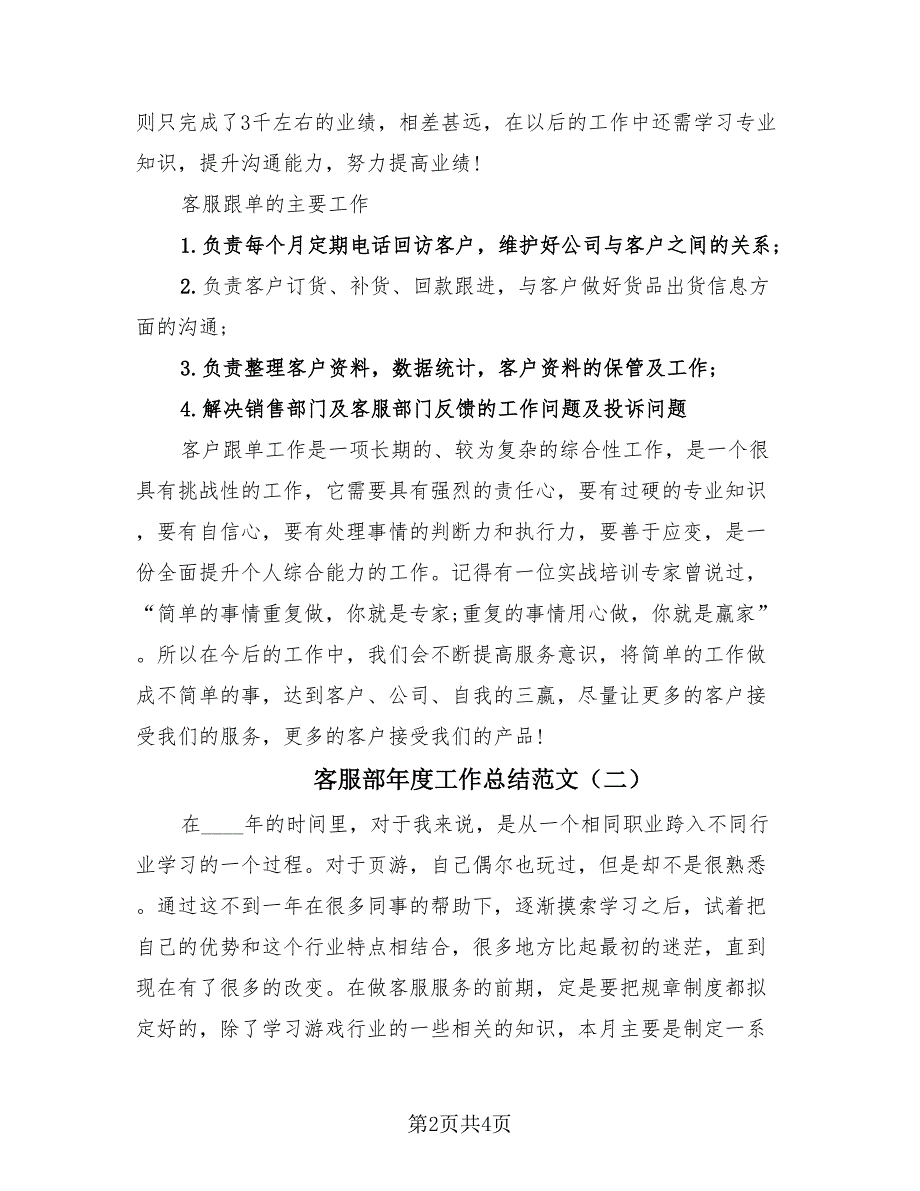 则只完成了3千左右的业绩，相差甚远，在以后的工作中还需学习专业
知识，提升沟通能力，努力提高业绩!
客服跟单的主要工作
1.负责每个月定期电话回访客户，维护好公司与客户之间的关系;
2.负责客户订货、补货、回款跟进，与客户做好货品出货信息方
面的沟通;
3.负责整理客户资料，数据统计，客户资料的保管及工作;
4.解决销售部门及客服部门反馈的工作问题及投诉问题
客户跟单工作是一项长期的、较为复杂的综合性工作，是一个很
具有挑战性的工作，它需要具有强烈的责任心，要有过硬的专业知识
，要有自信心，要有处理事情的判断力和执行力，要善于应变，是一
份全面提升个人综合能力的工作。记得有一位实战培训专家曾说过，
“简单的事情重复做，你就是专家;重复的事情用心做，你就是赢家”
。所以在今后的工作中，我们会不断提高服务意识，将简单的工作做
成不简单的事，达到客户、公司、自我的三赢，尽量让更多的客户接
受我们的服务，更多的客户接受我们的产品!
客服部年度工作总结范文（二）
在____年的时间里，对于我来说，是从一个相同职业跨入不同行
业学习的一个过程。对于页游，自己偶尔也玩过，但是却不是很熟悉
。通过这不到一年在很多同事的帮助下，逐渐摸索学习之后，试着把
自己的优势和这个行业特点相结合，很多地方比起最初的迷茫，直到
现在有了很多的改变。在做客服服务的前期，定是要把规章制度都拟
定好的，除了学习游戏行业的一些相关的知识，本月主要是制定一系
第2页共4页